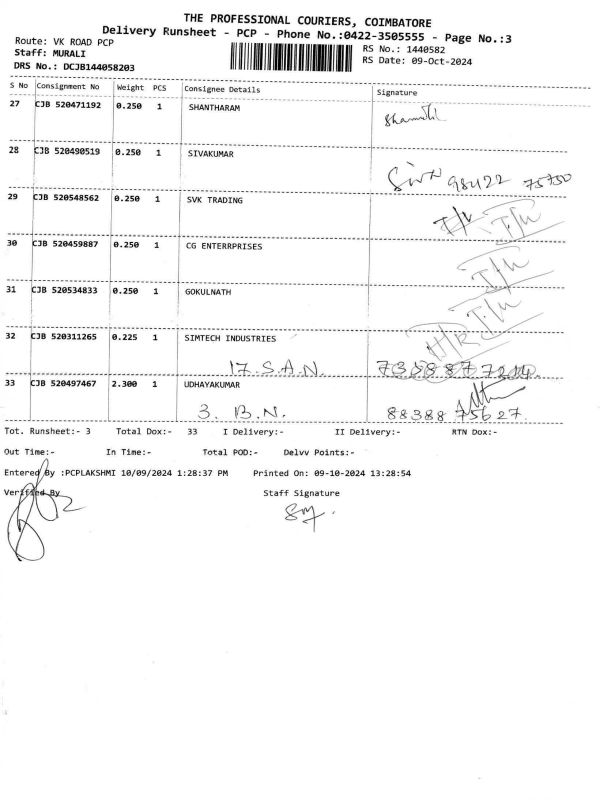 THE PROFESSIONAL COURIERS, COIMBATORE
Delivery Runsheet - PCP - Phone No.:0422-3505555 - Page No.:3
Route: VK ROAD PCP
RS No.: 1440582
Staff: MURALI
RS Date: 09-Oct-2024
DRS No.: DCJB144058203
S No Consignment No Weight PCS Consignee Details Signature
27 CJB 520471192 0.250 1 SHANTHARAM
28 CJB 520490519 0.250 1 SIVAKUMAR
98422 75750
29 CJB 520548562 0.250 1 SVK TRADING
30 CJB 520459887 0.250 1 CG ENTERRPRISES
31 CJB 520534833 0.250 1 GOKULNATH
32 CJB 520311265 0.225 1 SIMTECH INDUSTRIES
17. S.A.N.
33 CJB 520497467 2.300 1 UDHAYAKUMAR
3. B.N. 88388 75627
Tot. Runsheet:- 3 Total Dox:- 33 I Delivery:- II Delivery:- RTN Dox:-
Out Time:- In Time:- Total POD:- Delvv Points:-
Entered By :PCPLAKSHMI 10/09/2024 1:28:37 PM Printed On: 09-10-2024 13:28:54
Verified By Staff Signature